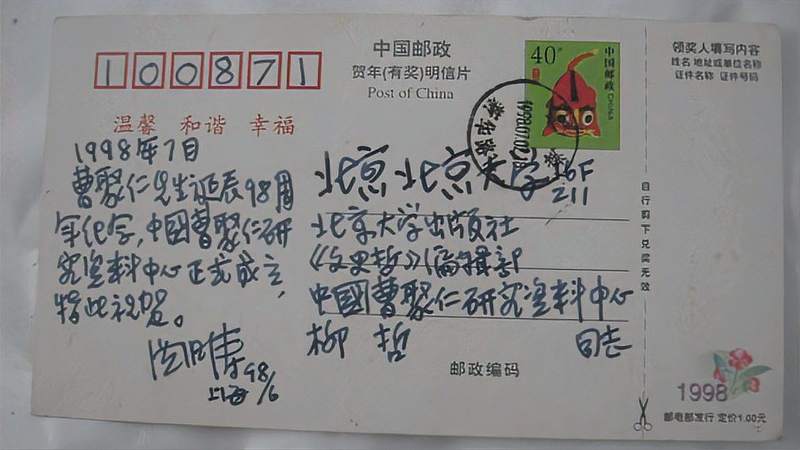 中国邮政
贺年(有奖)明信片
Post of China
100871
温馨 和谐 幸福
40分
中国邮政
CHINA
领奖人填写内容
姓名 地址或单位名称
证件名称 证件号码
1998年7月
曹聚仁先生诞辰98周
年纪念,中國曹聚仁研
究资料中心正式成立,
特此祝贺。
上海98/6
北京北京大学26F
211
北京大学出版社
《文史哲》编辑部
中國曹聚仁研究资料中心
柳哲 同志
邮政编码
自行剪下兑奖无效
1998
邮电部发行 定价1.00元